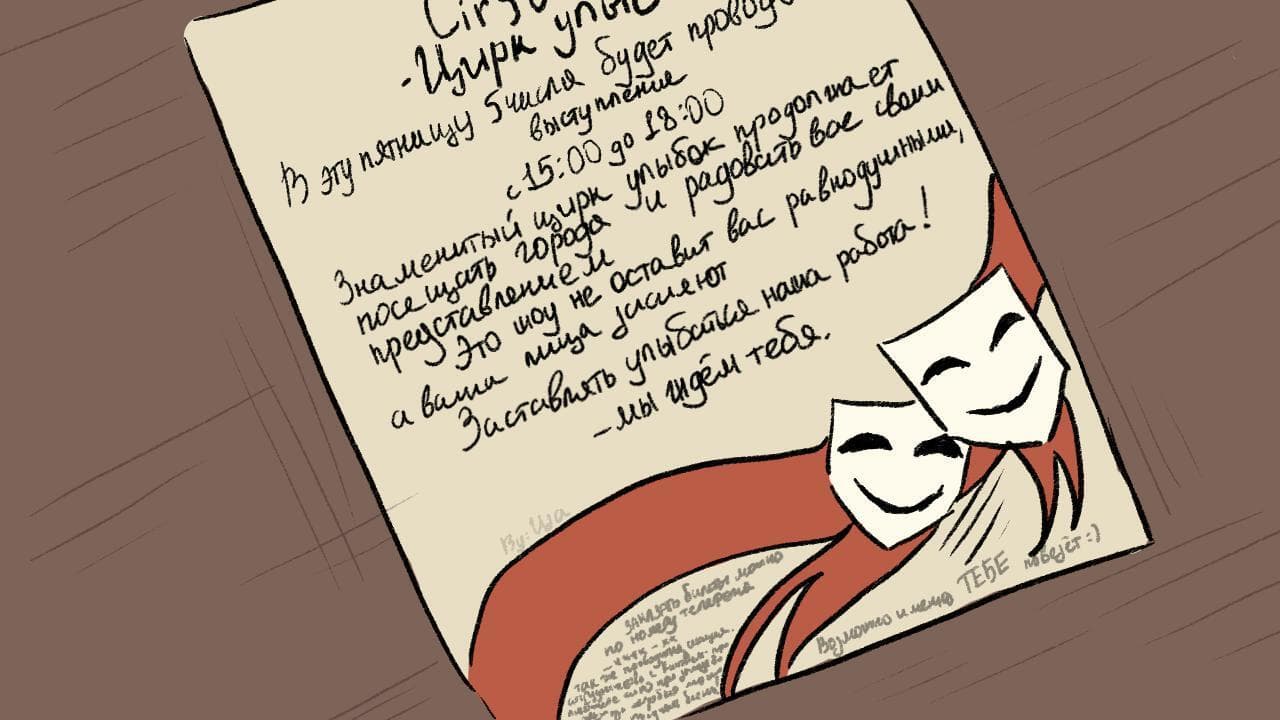 Цирк улыб
В эту пятницу 5 числа будет провод
выступление
с 15:00 до 18:00
Знаменитый цирк улыбок продолжает
посещать города и радовать вас своим
представлением
Это шоу не оставит вас равнодушными,
а ваши лица засияют
Заставлять улыбаться наша работа!
- мы ждём тебя.
By:
заказать билеты можно
по номеру телефона
так же проводится акция
Возможно именно ТЕБЕ повезёт :)